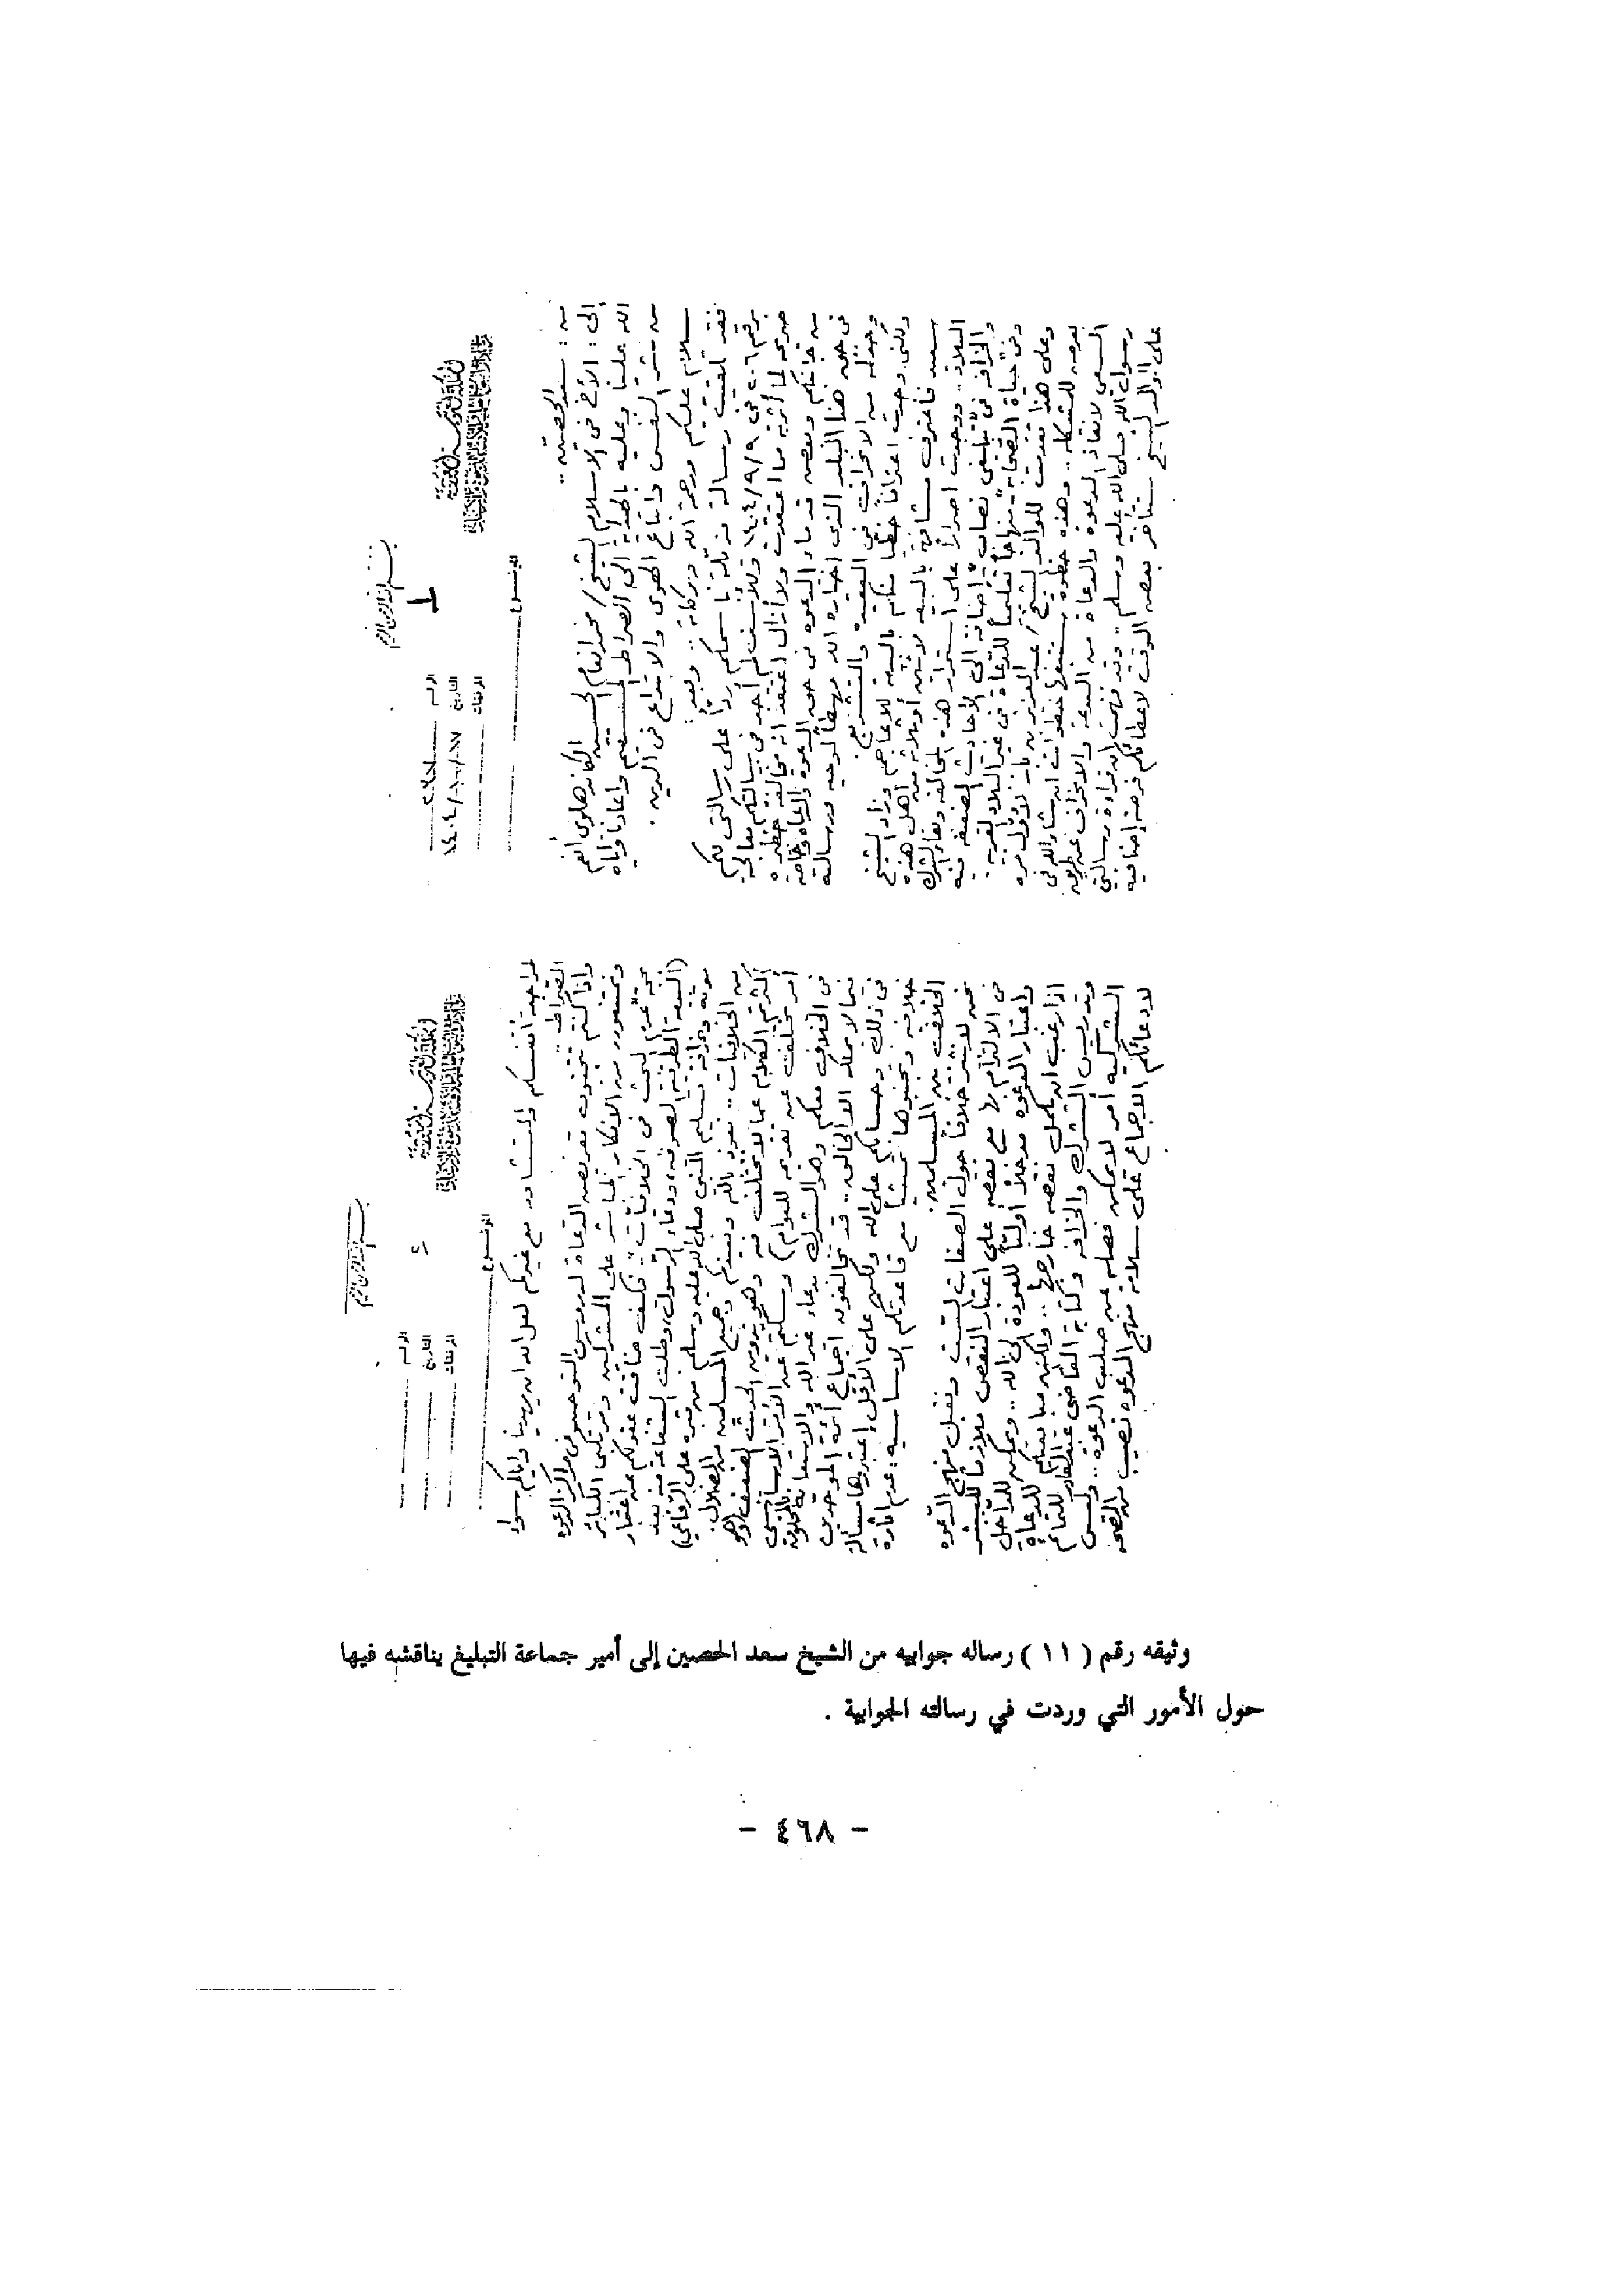 بسم الله الرحمن الرحيم
١
الرقم
التاريخ
المرفقات
الموضوع
من : سعد الحصين ..
إلى : الأخ في الاسلام الشيخ / محمد انعام الحسن الكاندهلوي أنعم
الله علينا وعليه بالهداية إلى الصراط المستقيم وأعاذنا وإياه
من شر النفس واتباع الهوى والابتداع في الدين .
سلام عليكم ورحمة الله وبركاته .. وبعد :
فقد تلقيت رسالة مذيلة باسمكم رداً على رسالتي لكم
برقم ٢٠٦ في ١٤٠٤/٩/٩ وللأسف لم أجد في رسالتكم معالجة
صريحة لما أثرته مما اعتقدت ولا أزال أعتقد انه مخالفة خطيرة
من جماعتكم وبعض قدماء الدعوة في حق الدعوة والدعاة وخاصة
في حق هذا البلد الذي اختاره الله مهبطاً لوحيه ورسالته
وحفظه من الانحراف في العقيدة والتشريع .
ولكني وجدت اعترافاً خطياً منكم بالبيعة للأعاجم وزاد الشيخ
سعيد فاعترف مشافهة بالبيعة لاثنين أو ثلاثة من أهل هذه
البلاد .. ووجدت اصراراً على استمرار هذه المخالفة وبقاء الشرك
والخرافة في تبليغي نصاب إضافة إلى الأحاديث الضعيفة فيه
وفي حياة الصحابة منهاجاً تعليمياً للدعاة في غير البلاد العربية .
وعلى هذا تقدمت للوالد الشيخ / عبدالعزيز بن باز لأول مرة
بعرض للمشكلة .. وهذه خطوة ستتبعها خطوات ان شاء الله في
السعي لانقاذ الدعوة والدعاة من البدعة والانحراف عن طريق
رسول الله صلى الله عليه وسلم .. وقد فهمت ان قراءة رسالتي
على الوالد الشيخ ستتأخر بعض الوقت لاعطائكم فرصة إضافية
بسم الله الرحمن الرحيم
الرقم
التاريخ
المرفقات
الموضوع
لمراجعة أنفسكم والتشاور مع غيركم لعل الله ان يهدينا وإياكم سواء
الصراط .
وإذا كنتم تتجنبون تعريض الدعاة لدروس التوحيد في مراكز الدعوة
وتمتنعون من الانكار المباشر على المشركين ومرتكبي الكبائر
بحجة عدم البحث في الخلافيات فكيف ضاقت عقولكم عن اعتبار
البيعة الطرقية الصوفية ودعاء الرسول وطلب الشفاعة منه بعد
موته وخرافة تسليم النبي صلى الله عليه وسلم من قبره على الرفاعي)
من الخلافيات .. نعوذ بالله ونعيذكم وجميع المسلمين من الضلال .
أكثرتم الكلام عما لا يختلف فيه
أمر مختلف عن تقديمه للعوام) وسكتم عن الأمر الأساسي
في الخلاف معكم وهو الشرك بدعاء غير الله والاستعانة بالمخلوق
فيما لا يملكه الا الخالق .. قد تخالفون اجماع أئمة الموحدين
في ذلك وحسابكم على الله ولكن على الأقل اعتبروها مسألة
خلافية وتجنبوها تمشياً مع قاعدتكم الأساسية : عدم اثارة
الخلافات بين المسلمين .
نحن لا نثير خلافاً حول الصفات الست ونقبل منهج الدعوة
في الالتزام بها مع نقصه على اعتبار النقص ملازماً للبشر
واعتبار الدعوة مدخلاً أولياً للعودة إلى الله .. ويمكن للداخل
إذا رغب ان يكمل نقصه خارجها .. ولكن مبايعتكم للدعاة
وتدريس الشرك والخرافة وكتابة القاضي عبدالقادر للتمائم
الشركية أمر لا يمكن فصله عن صلب الدعوة .. وليس
لادعائكم الاجماع على سلامة منهج الدعوة نصيب من الصحة
وثيقه رقم ( ١١ ) رساله جوابيه من الشيخ سعد الحصين إلى أمير جماعة التبليغ يناقشه فيها
حول الأمور التي وردت في رسالته الجوابية .
- ٤٦٨ -